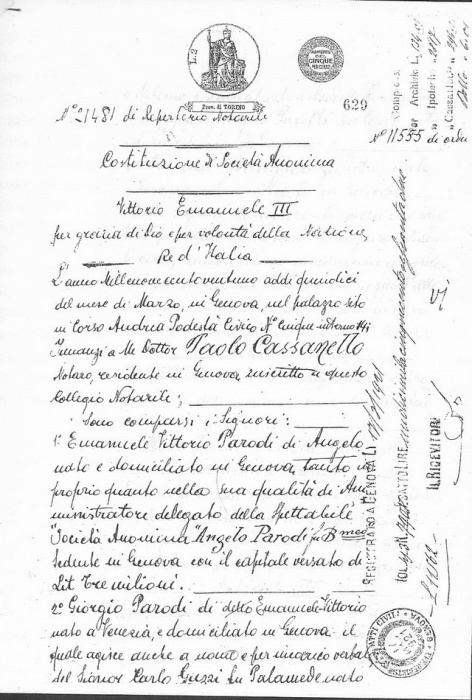 L.2
AUMENTO
CINQUE
Prov. di TORINO
629
N° 21481 di Repertorio Notarile
N° 11555 di ordin
Costituzione di Società Anonima
Vittorio Emanuele III
per grazia di Dio e per volontà della Nazione
Re d'Italia
L'anno Millenovecentoventuno addì quindici
del mese di Marzo, in Genova, nel palazzo sito
in Corso Andrea Podestà Civico N° Cinque interno
Innanzi a Me Dottor Paolo Cassanello
Notaro, residente in Genova, inscritto a questo
Collegio Notarile;
Sono comparsi i Signori:
1° Emanuele Vittorio Parodi di Angelo
nato e domiciliato in Genova, tanto in
proprio quanto nella sua qualità di Am
ministratore delegato della Spettabile
"Società Anonima "Angelo Parodi fu B meo
sedente in Genova con il capitale versato di
Lit Tre milioni.
2° Giorgio Parodi di detto Emanuele Vittorio
nato a Venezia, e domiciliato in Genova il
quale agisce anche a nome e per incarico verbal
del Signor Carlo Guzzi fu Palamede nato
Archivio L.
REGISTRATO A GENOVA LI
IL RICEVITORE
ATTI CIVILI
GENOVA